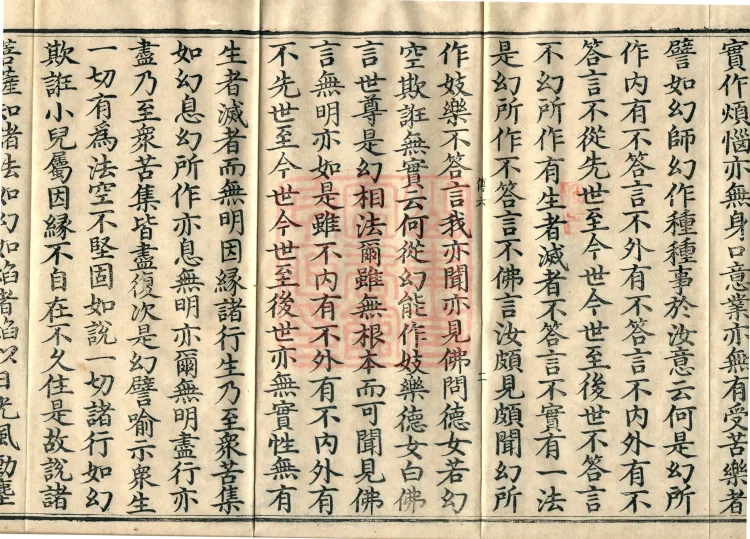 實作煩惱亦無身口意業亦無有受苦樂者
譬如幻師幻作種種事於汝意云何是幻所
作內有不答言不外有不答言不內外有不
答言不從先世至今世今世至後世不答言
不幻所作有生者滅者不答言不實有一法
是幻所作不答言不佛言汝頗見頗聞幻所
六 二
作妓樂不答言我亦聞亦見佛問德女若幻
空欺誑無實云何從幻能作妓樂德女白佛
言世尊是幻相法爾雖無根本而可聞見佛
言無明亦如是雖不內有不外有不內外有
不先世至今世今世至後世亦無實性無有
生者滅者而無明因緣諸行生乃至衆苦集
如幻息幻所作亦息無明亦爾無明盡行亦
盡乃至衆苦集皆盡復次是幻譬喻示衆生
一切有為法空不堅固如說一切諸行如幻
欺誑小兒屬因緣不自在不久住是故說諸
菩薩知諸法如幻如焰者焰以日光風動塵